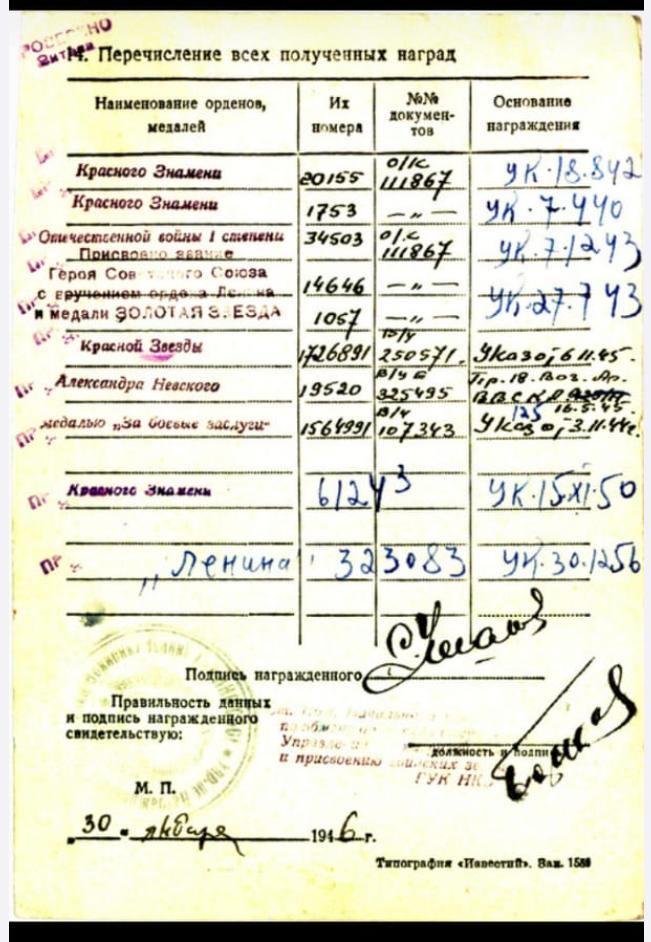 14. Перечисление всех полученных наград
Наименование орденов, медалей
Их номера
№№ документов
Основание награждения
Красного Знамени 20155 о/к 111867 УК.18.842
Красного Знамени 1753 —„— УК.7.440
Отечественной войны I степени 34503 о/к 111867 УК.7.1243
Присвоено звание
Героя Советского Союза 14646 —„—
с вручением ордена Ленина УК.27.743
и медали ЗОЛОТАЯ ЗВЕЗДА 1057 —„—
Красной Звезды 1726891 в/у 250571. Указ от 6.11.45.
Александра Невского 19520 325495 Пр. 18. Воз. Ар.
16.5.45.
медалью „За боевые заслуги" 1564991 в/у 107343 Указ от 3.11.44г.
Красного Знамени 61243 УК.15.XI.50
„Ленина" 323083 УК.30.1256
Подпись награжденного
Правильность данных
и подпись награжденного
свидетельствую:
должность и подпись
и присвоению воинских
ГУК НК
М. П.
„30" января 1946 г.
Типография «Известий». Зак. 1589